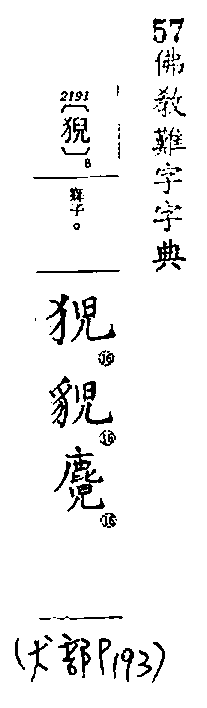 57佛教難字字典
2191
〔猊〕8
獅子。
猊⑯
貎⑯
麑⑯
(犬部P.193)